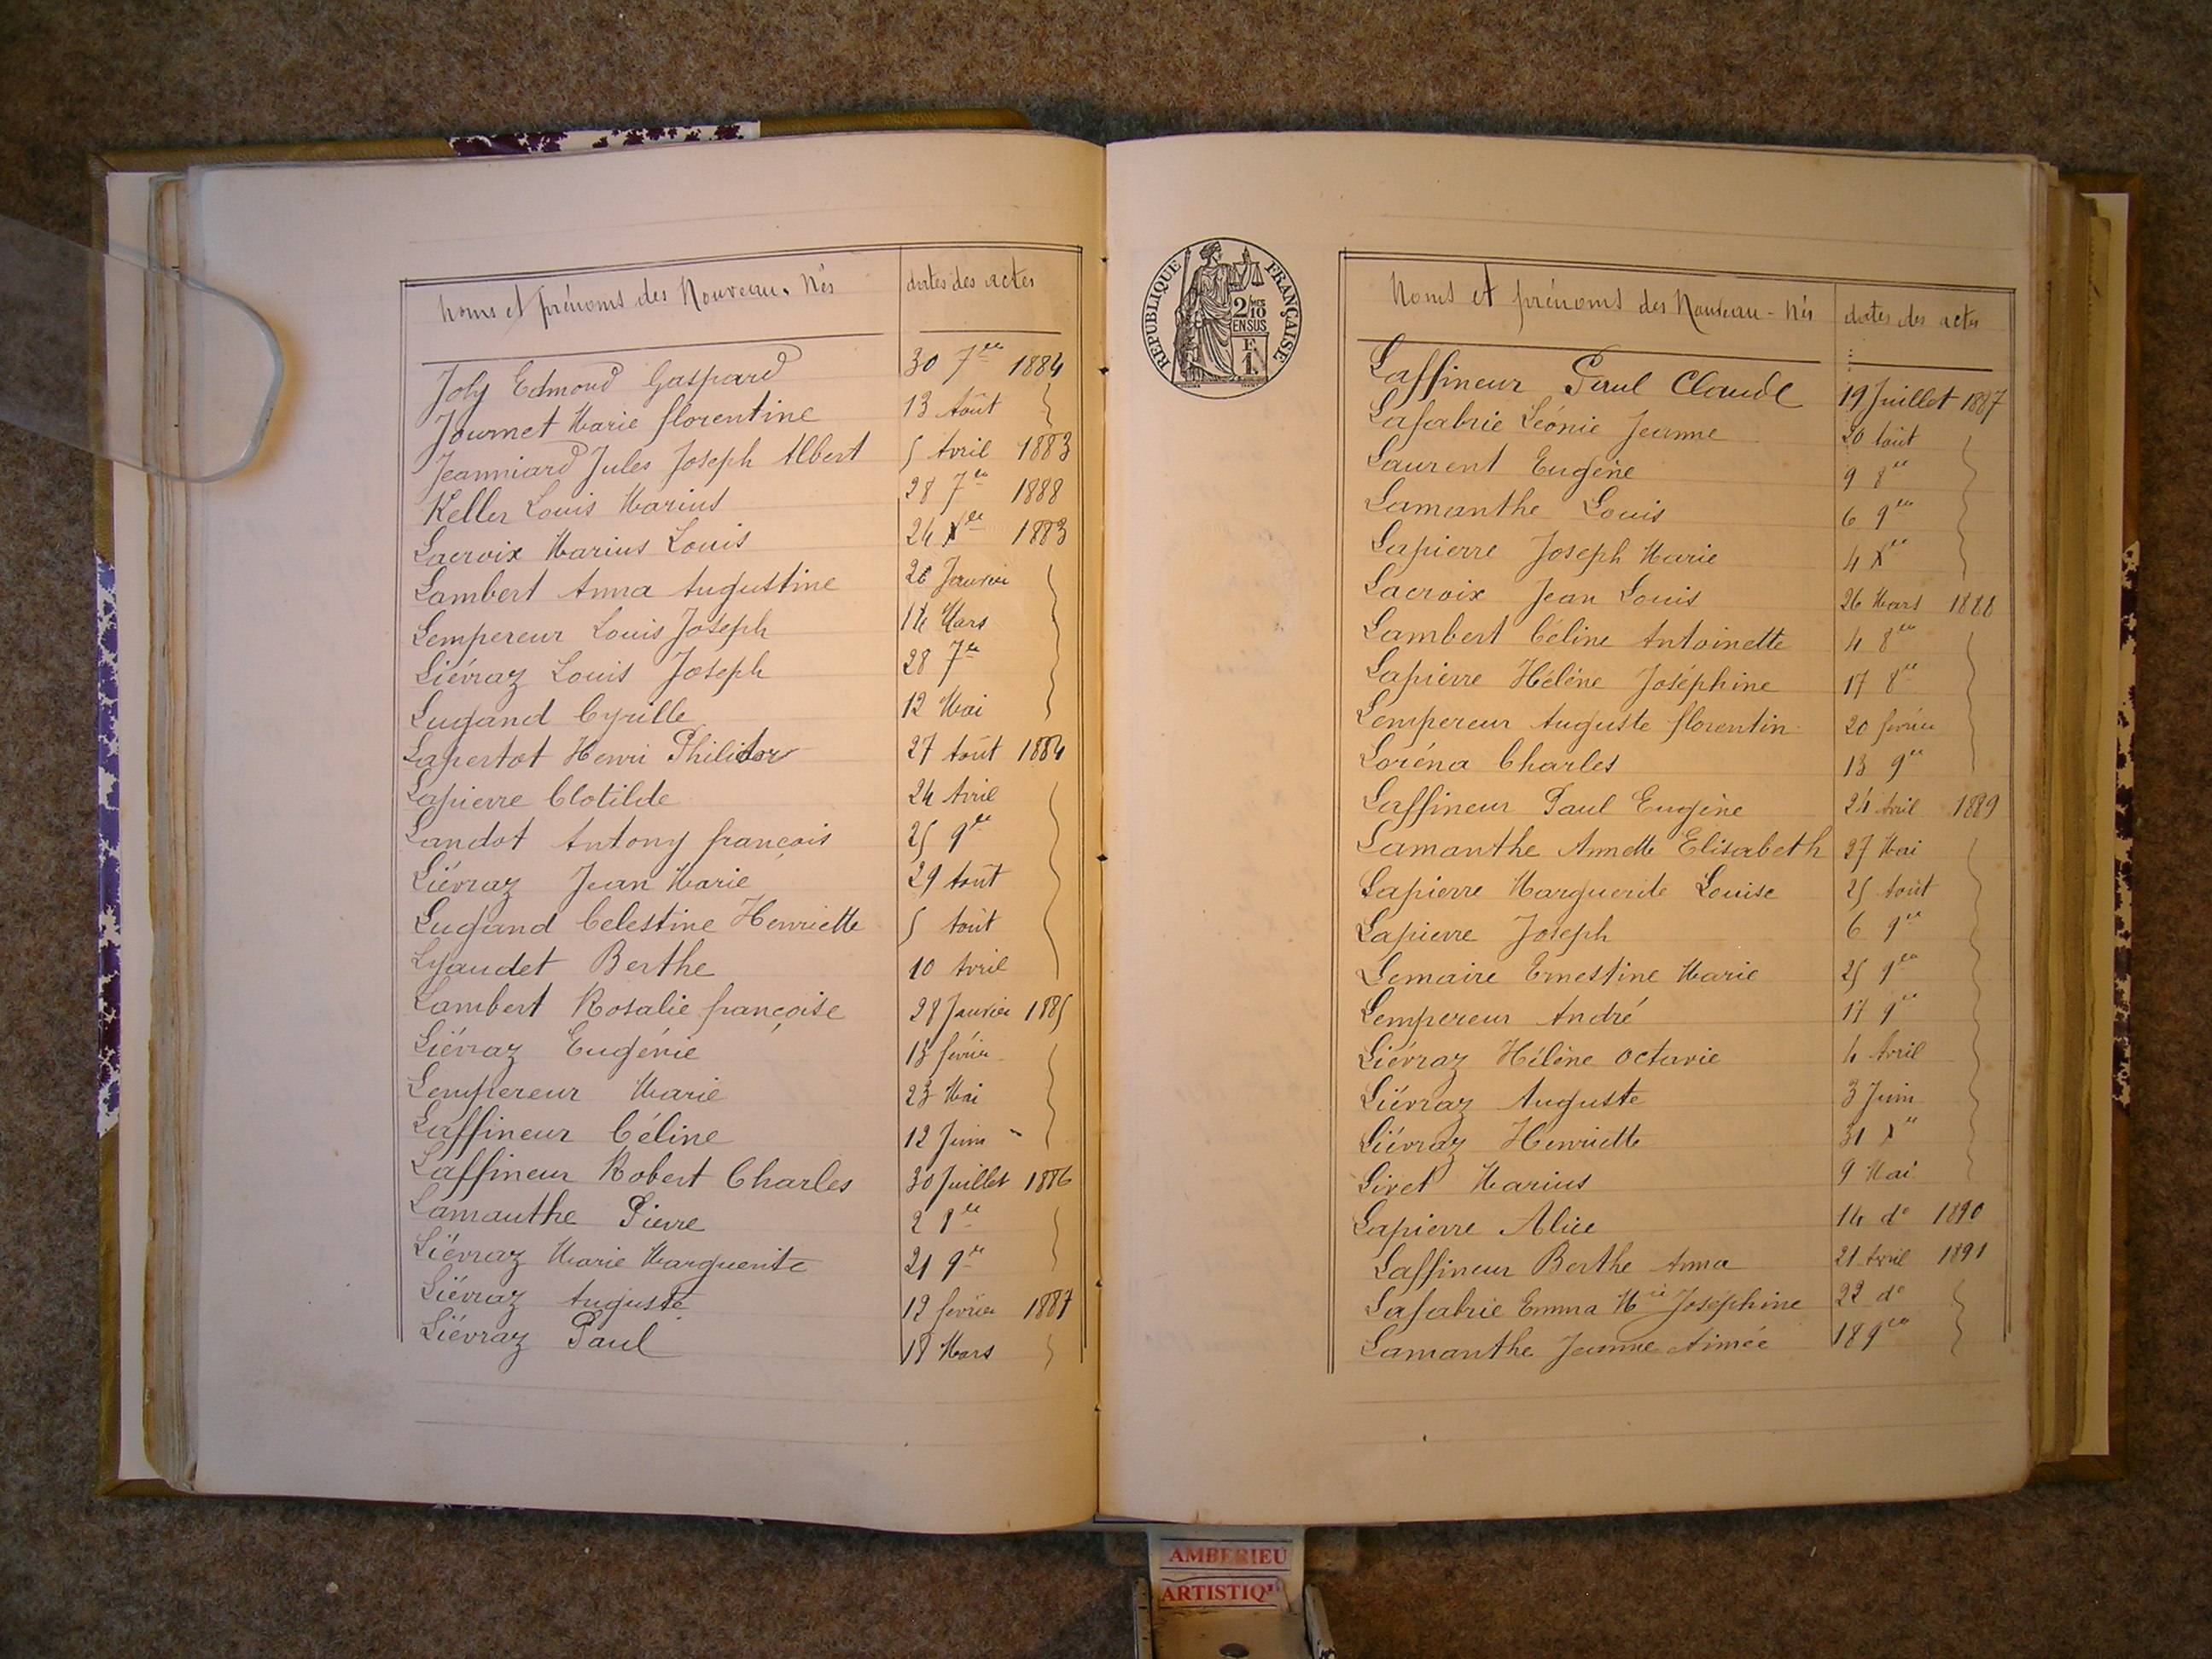 Noms et prénoms des Nouveau-Nés dates des actes
Joly Edmond Gaspard 30 7bre 1884
Journet Marie florentine 13 Août
Jeanniard Jules Joseph Albert 5 Avril 1883
Keller Louis Marius 28 7bre 1888
Lacroix Marius Louis 24 Xbre 1883
Lambert Anna Augustine 26 Janvier
Lempereur Louis Joseph 14 Mars
Liévraz Louis Joseph 28 7bre
Lugand Cyrille 12 Mai
Lapertot Henri Philidor 27 Août 1884
Lapierre Clotilde 24 Avril
Landot Antony françois 25 9bre
Liévraz Jean Marie 29 Août
Lugand Celestine Henriette 5 Août
Lyaudet Berthe 10 Avril
Lambert Rosalie françoise 28 Janvier 1885
Liévraz Eugénie 13 février
Lempereur Marie 23 Mai
Laffineur Céline 12 Juin
Laffineur Robert Charles 30 Juillet 1886
Lamanthe Pierre 2 8bre
Liévraz Marie Marguerite 21 9bre
Liévraz Auguste 12 février 1887
Liévraz Paul 18 Mars
RÉPUBLIQUE FRANÇAISE
2/10 MES
EN SUS
F.
1.
Noms et prénoms des Nouveau-Nés dates des actes
Laffineur Paul Claude 19 Juillet 1887
Lafabrie Léonie Jeanne 20 Août
Laurent Eugène 9 8bre
Lamanthe Louis 6 9bre
Lapierre Joseph Marie 4 Xbre
Lacroix Jean Louis 26 Mars 1888
Lambert Céline Antoinette 4 8bre
Lapierre Hélène Joséphine 17 8bre
Lempereur Auguste florentin 20 février
Loréna Charles 13 9bre
Laffineur Paul Eugène 24 Avril 1889
Lamanthe Annette Elisabeth 27 Mai
Lapierre Marguerite Louise 25 Août
Lapierre Joseph 6 9bre
Lemaire Ernestine Marie 25 9bre
Lempereur André 17 9bre
Liévraz Hélène Octavie 4 Avril
Liévraz Auguste 3 Juin
Liévraz Henriette 31 Xbre
Livet Marius 9 Mai
Lapierre Alice 14 do 1890
Laffineur Berthe Anna 21 Avril 1891
Lafabrie Emma Mie Joséphine 22 do
Lamanthe Jeanne Aimée 18 9bre
AMBERIEU
ARTISTIQ